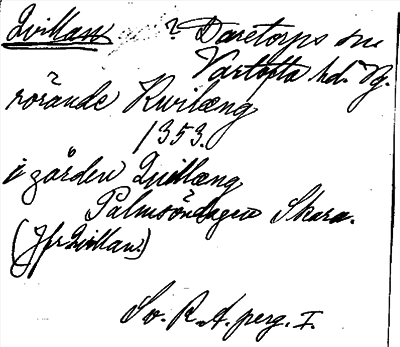 Qvillan ? Daretorps sn.
Vartofta hd. Vg.
rörande Kvilæng
1353.
i gården Quillæng
Palmsöndagen Skara.
(Jfr Qvillan.)
Sv. R. A. perg. I.